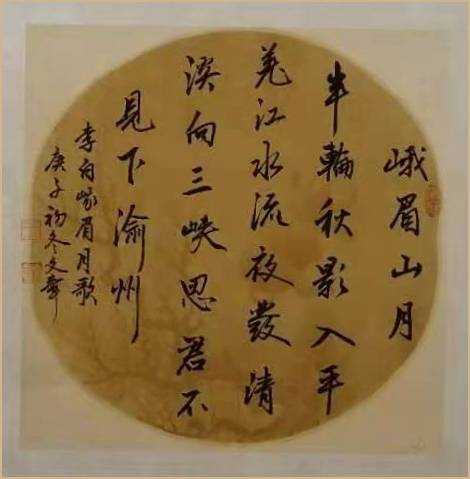 峨眉山月
半輪秋影入平
羌江水流夜發清
溪向三峽思君不
見下渝州
李白峨眉月歌
庚子初冬文